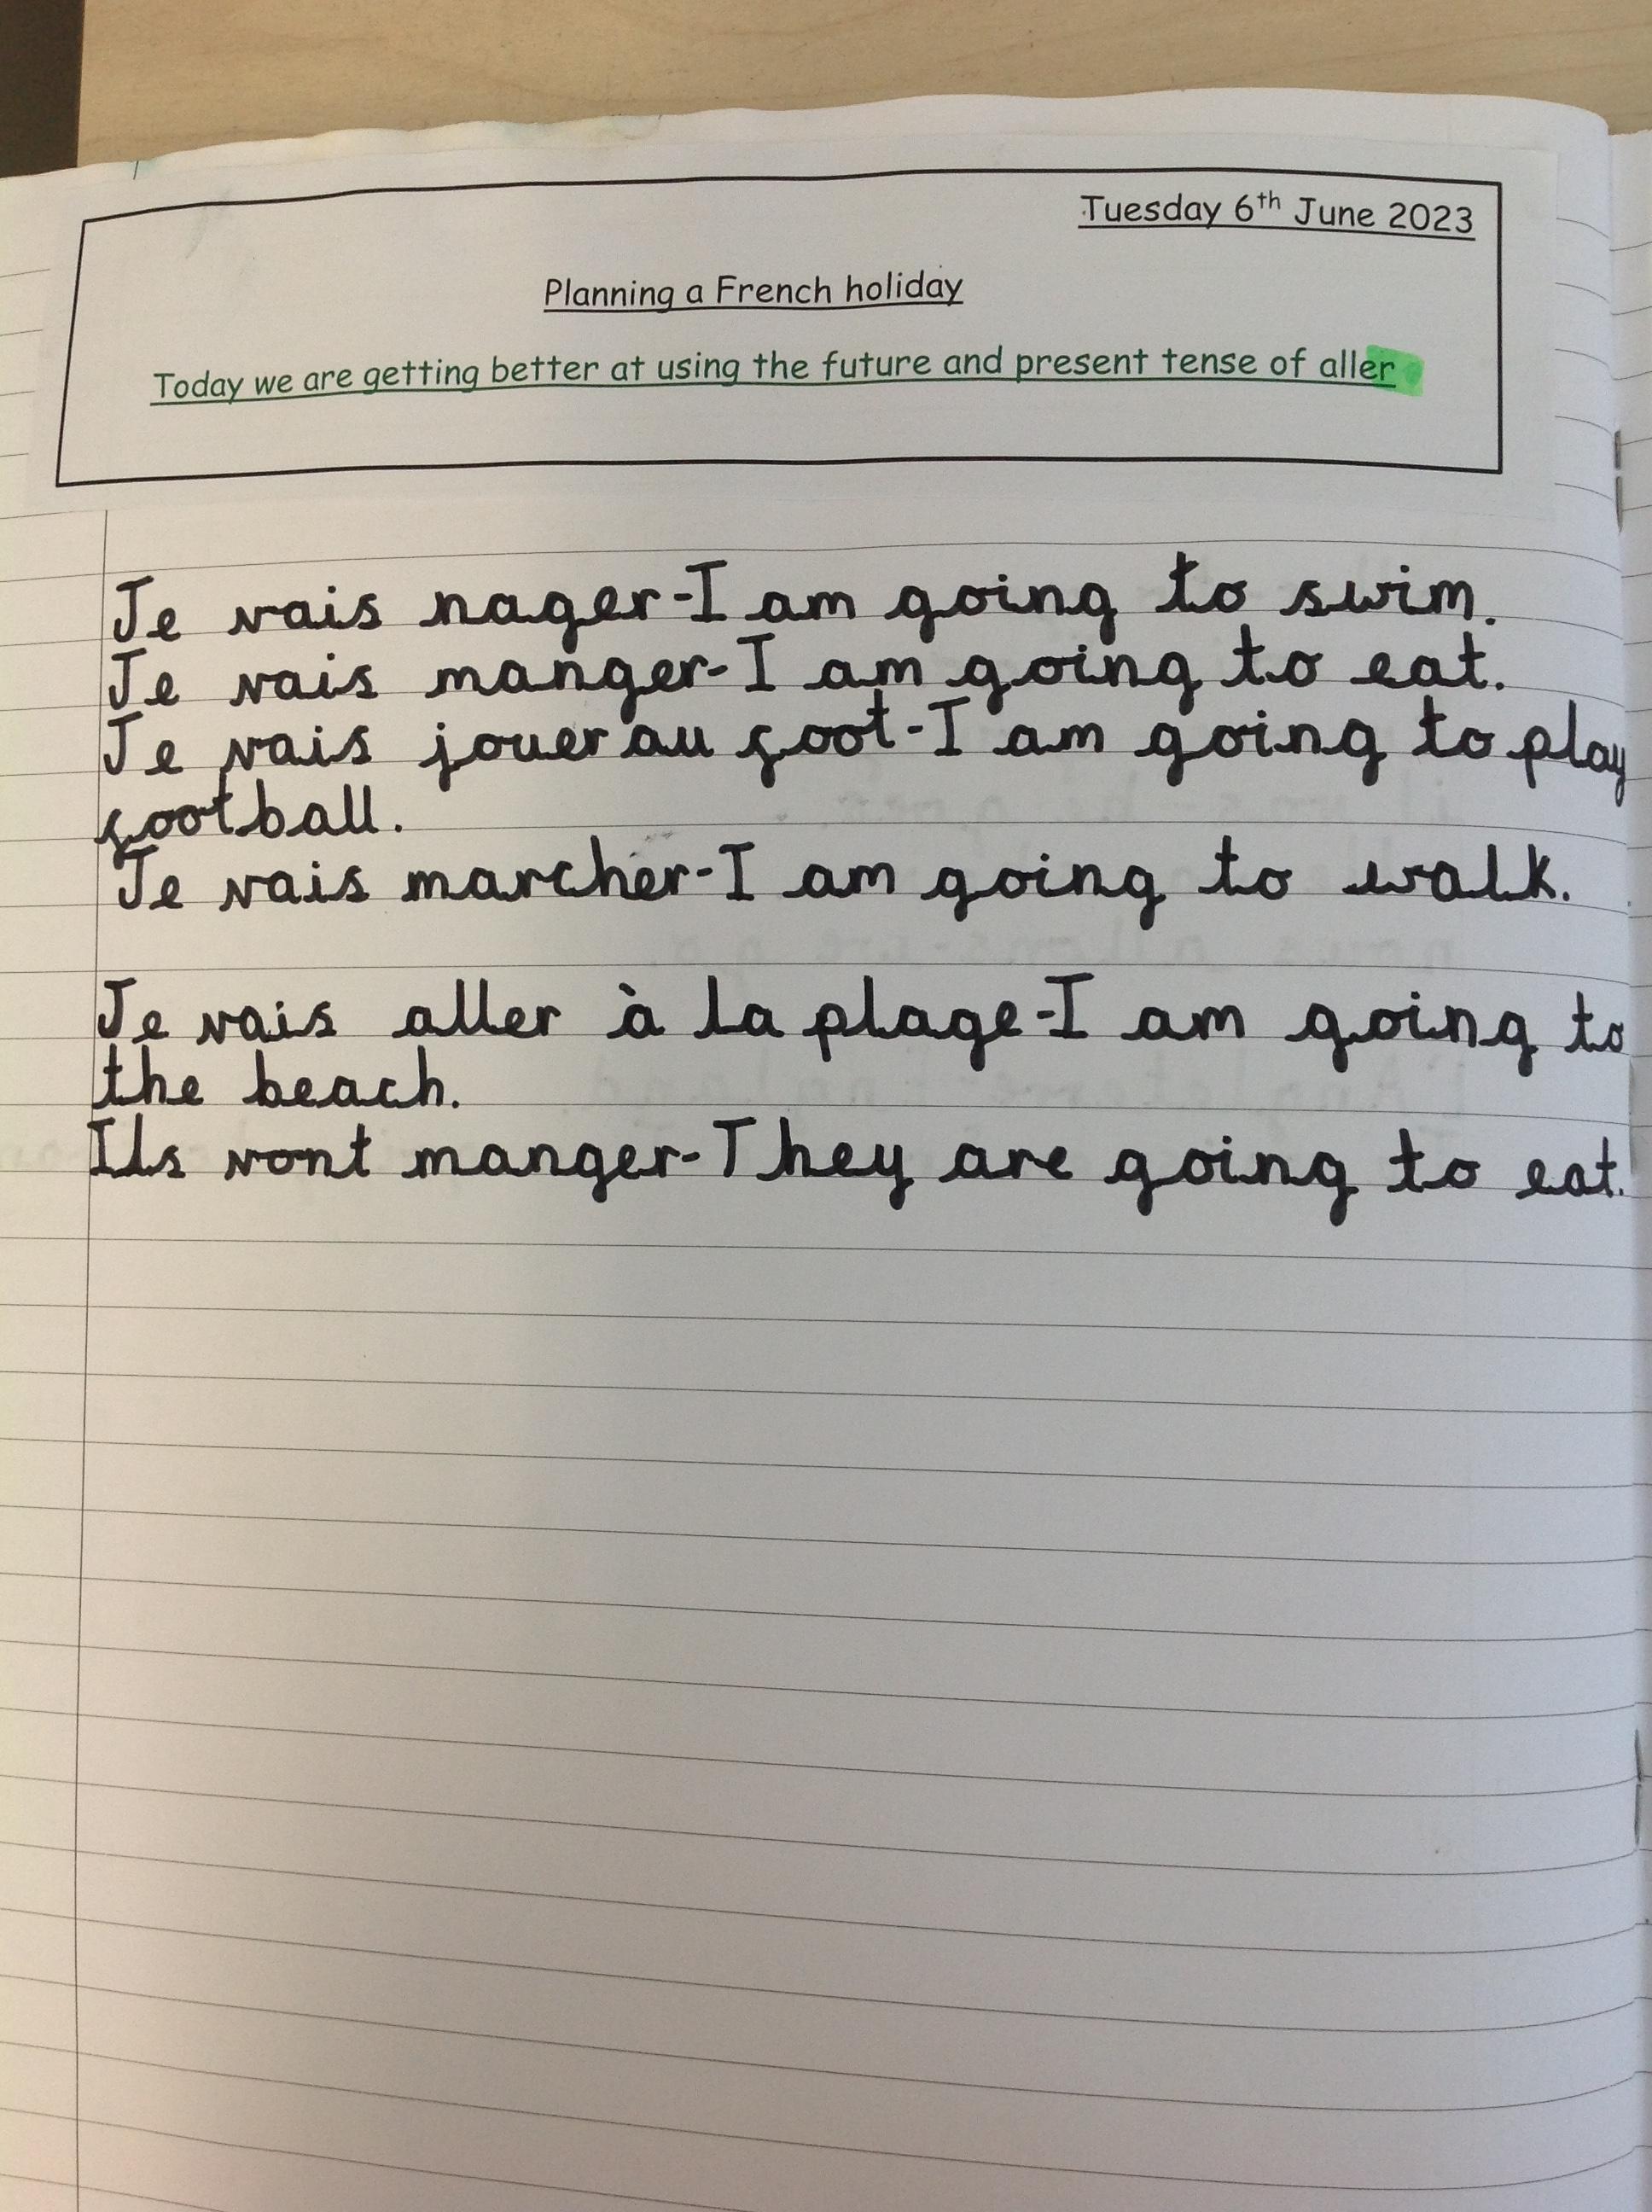 Tuesday 6th June 2023
Planning a French holiday
Today we are getting better at using the future and present tense of aller
Je vais nager-I am going to swim.
Je vais manger-I am going to eat.
Je vais jouer au foot-I am going to play
football.
Je vais marcher-I am going to walk.
Je vais aller à la plage-I am going to
the beach.
Ils vont manger-They are going to eat.